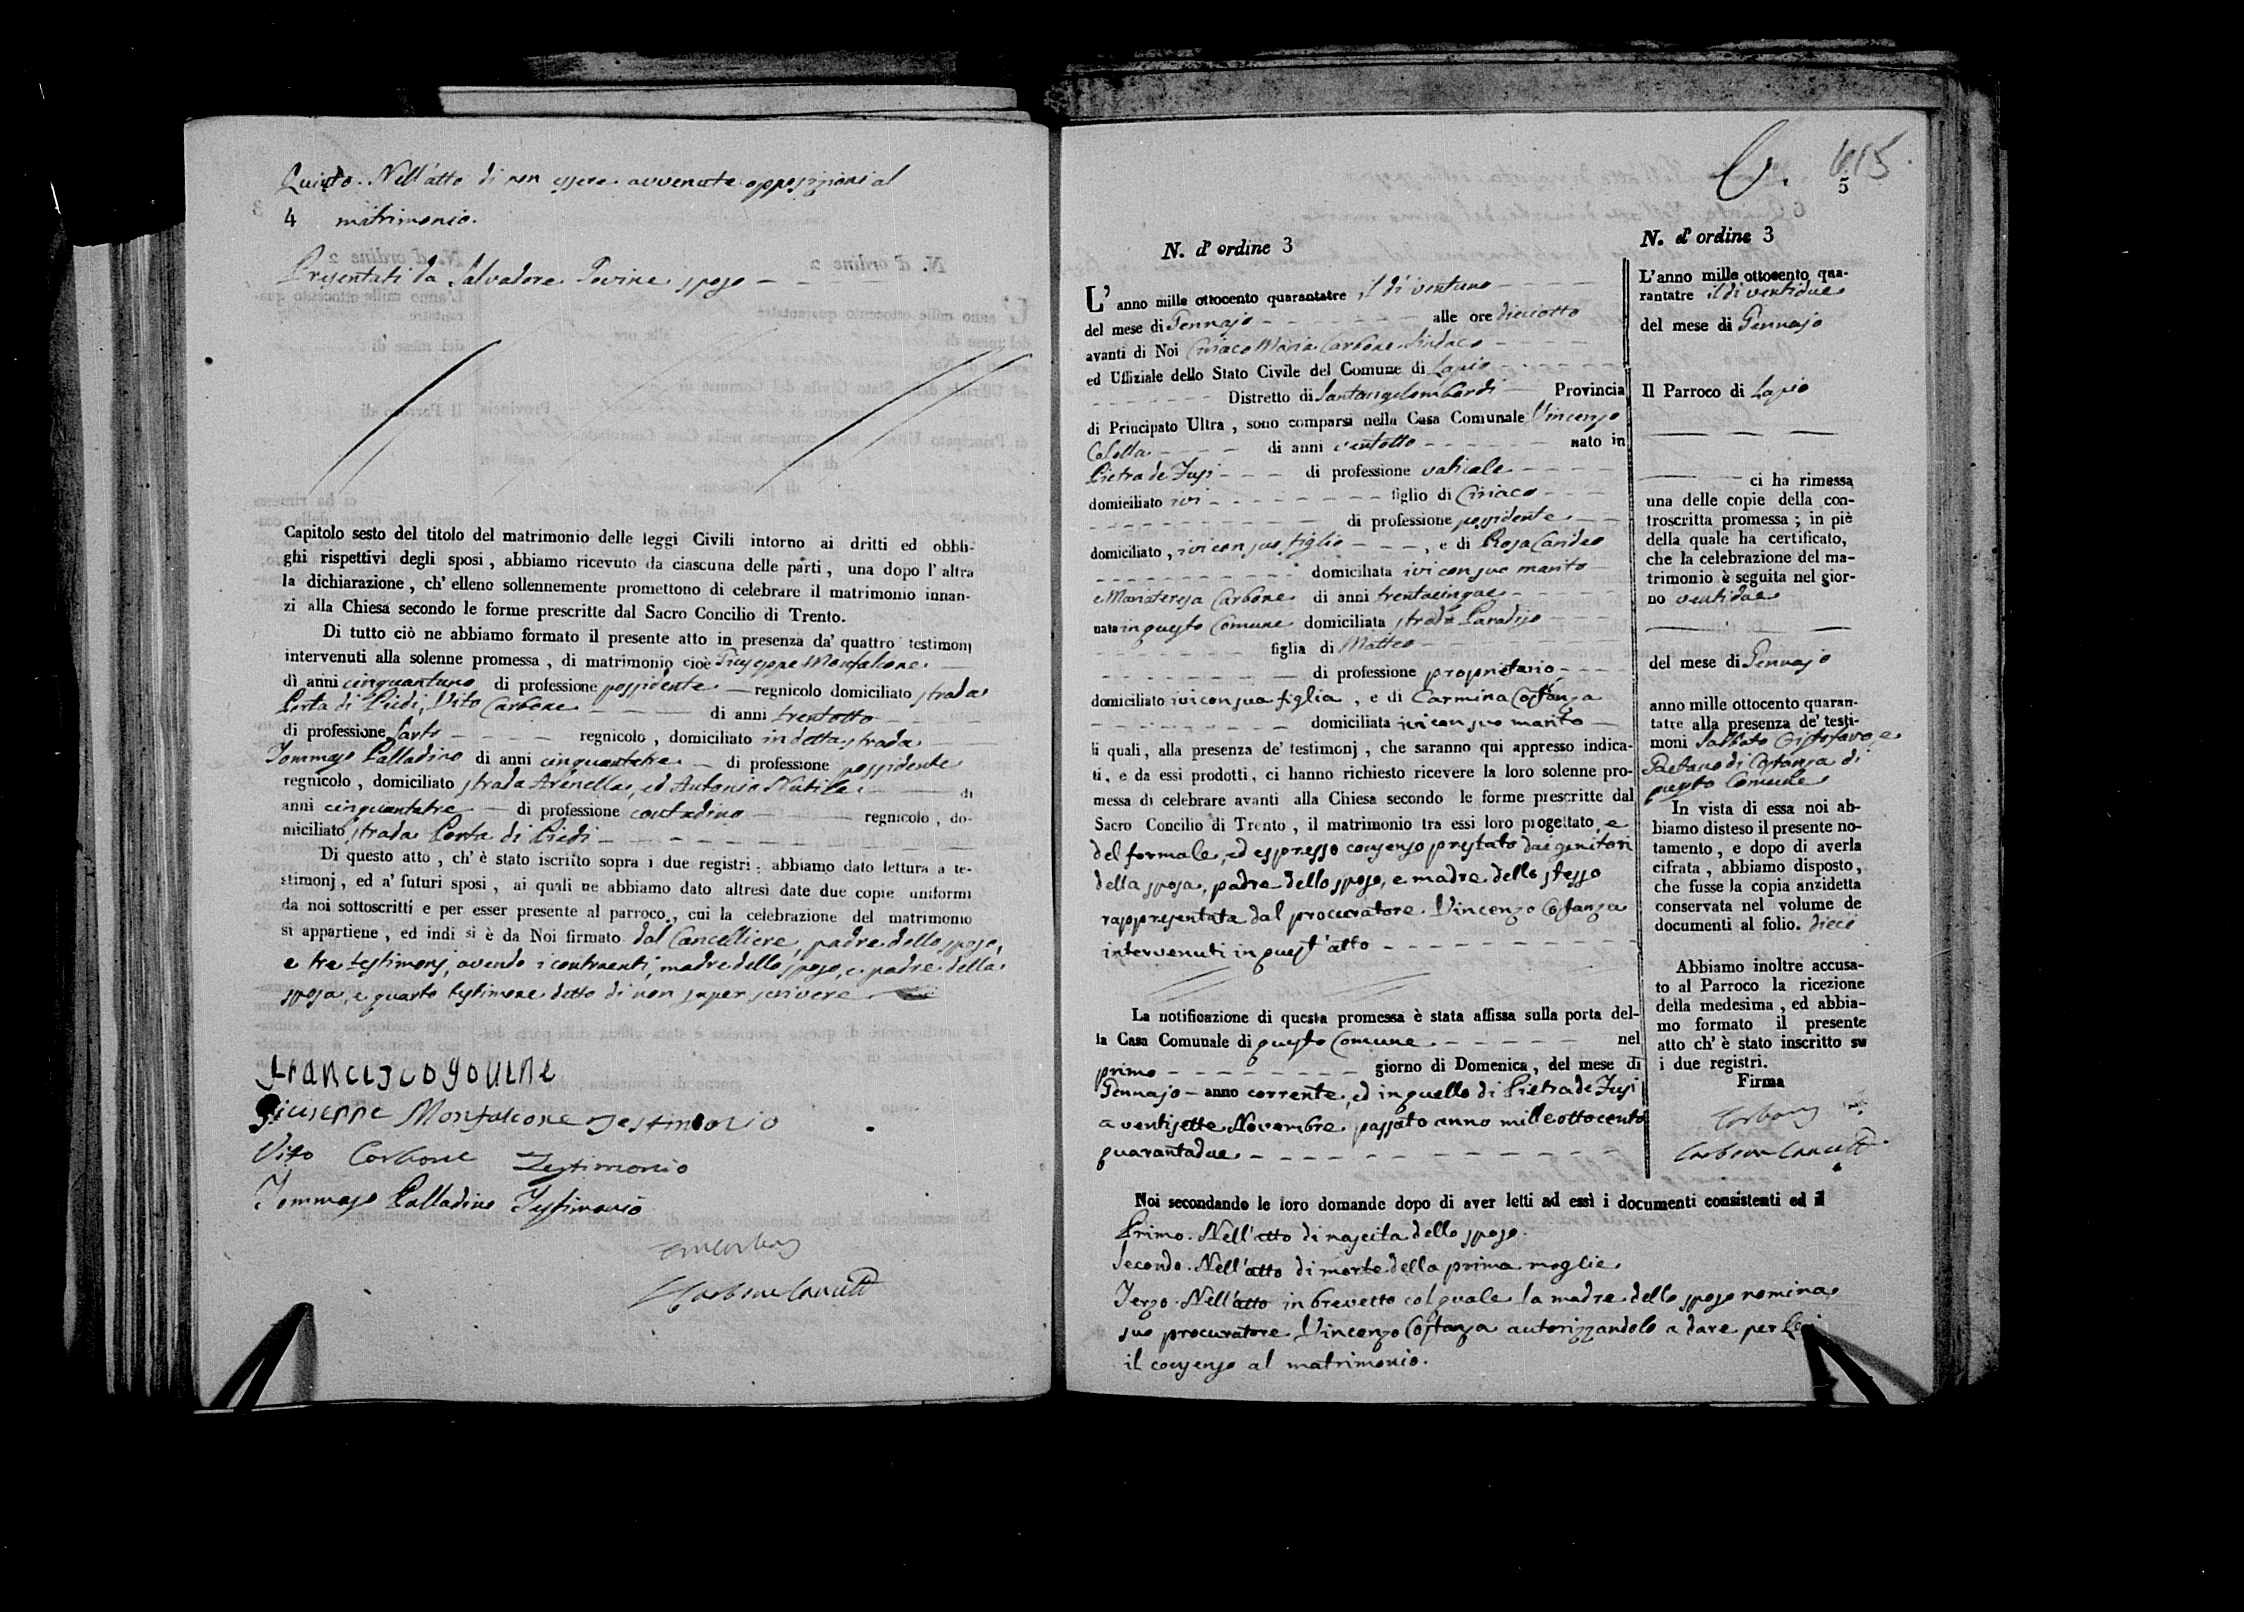 Quinto. Nell'atto di non essere avvenute opposizioni al
4 matrimonio.
Presentati da Salvadore Iovine sposo
Capitolo sesto del titolo del matrimonio delle leggi Civili intorno ai dritti ed obbli-
ghi rispettivi degli sposi, abbiamo ricevuto da ciascuna delle parti, una dopo l'altra
la dichiarazione, ch'elleno sollennemente promettono di celebrare il matrimonio innan-
zi alla Chiesa secondo le forme prescritte dal Sacro Concilio di Trento.
Di tutto ciò ne abbiamo formato il presente atto in presenza da' quattro testimonj
intervenuti alla solenne promessa, di matrimonio cioè Giuseppe Monfalcone
di anni cinquantuno di professione possidente regnicolo domiciliato strada
Porta di Piedi, Vito Carbone di anni trentotto
di professione Sarto regnicolo, domiciliato in detta strada
Tommaso Palladino di anni cinquantatre di professione possidente
regnicolo, domiciliato strada Arenella, ed Antonio Nutile di
anni cinquantatre di professione contadino regnicolo, do-
miciliato strada Porta di Piedi
Di questo atto, ch'è stato iscritto sopra i due registri: abbiamo dato lettura a te-
stimonj, ed a' futuri sposi, ai quali ne abbiamo dato altresì date due copie uniformi
da noi sottoscritti e per esser presente al parroco, cui la celebrazione del matrimonio
si appartiene, ed indi si è da Noi firmato dal Cancelliere, padre dello sposo,
e tre testimonj, avendo i contraenti, madre dello sposo, e padre della
sposa, e quarto testimone detto di non saper scrivere
Francesco Iovine
Giuseppe Monfalcone Testimonio
Vito Carbone Testimonio
Tommaso Palladino Testimonio
Carbone Canc
615
5
N. d'ordine 3
L'anno mille ottocento quarantatre il di ventuno
del mese di Gennajo alle ore dieciotto
avanti di Noi Ciriaco Maria Carbone Sindaco
ed Uffiziale dello Stato Civile del Comune di Lapio
Distretto di Santangelombardi Provincia
di Principato Ultra, sono comparsi nella Casa Comunale Vincenzo
Colella di anni ventotto nato in
Pietra de Fusi di professione vaticale
domiciliato ivi figlio di Ciriaco
di professione possidente
domiciliato, ivi con suo figlio, e di Rosa Cardeo
domiciliata ivi con suo marito
e Mariateresa Carbone di anni trentacinque
nata in questo Comune domiciliata strada Paradiso
figlia di Matteo
di professione proprietario
domiciliato ivi con sua figlia, e di Carmina Costanza
domiciliata ivi con suo marito
li quali, alla presenza de' testimonj, che saranno qui appresso indica-
ti, e da essi prodotti, ci hanno richiesto ricevere la loro solenne pro-
messa di celebrare avanti alla Chiesa secondo le forme prescritte dal
Sacro Concilio di Trento, il matrimonio tra essi loro progettato, e
del formale, ed espresso consenso prestato dai genitori
della sposa, padre dello sposo, e madre dello stesso
rappresentata dal procuratore Vincenzo Costanza
intervenuti in quest'atto
La notificazione di questa promessa è stata affissa sulla porta del-
la Casa Comunale di questo Comune nel
primo giorno di Domenica, del mese di
Gennajo anno corrente, ed in quello di Pietra de Fusi
a ventisette Novembre passato anno milleottocento
quarantadue
Noi secondando le loro domande dopo di aver letti ad essi i documenti consistenti ed il
Primo. Nell'atto di nascita dello sposo.
Secondo. Nell'atto di morte della prima moglie.
Terzo. Nell'atto in brevetto col quale la madre dello sposo nomina
suo procuratore Vincenzo Costanza autorizzandolo a dare per lei
il consenso al matrimonio.
N. d'ordine 3
L'anno mille ottocento qua-
rantatre il di ventidue
del mese di Gennajo
Il Parroco di Lapio
ci ha rimessa
una delle copie della con-
troscritta promessa; in piè
della quale ha certificato,
che la celebrazione del ma-
trimonio è seguita nel gior-
no ventidue
del mese di Gennajo
anno mille ottocento quaran-
tatre alla presenza de' testi-
moni Sabbato Cristofaro, e
Gaetano di Costanza di
questo Comune
In vista di essa noi ab-
biamo disteso il presente no-
tamento, e dopo di averla
cifrata, abbiamo disposto,
che fusse la copia anzidetta
conservata nel volume de
documenti al folio. dieci
Abbiamo inoltre accusa-
to al Parroco la ricezione
della medesima, ed abbia-
mo formato il presente
atto ch'è stato inscritto su
i due registri.
Firma
Carbone
Carbone Canc